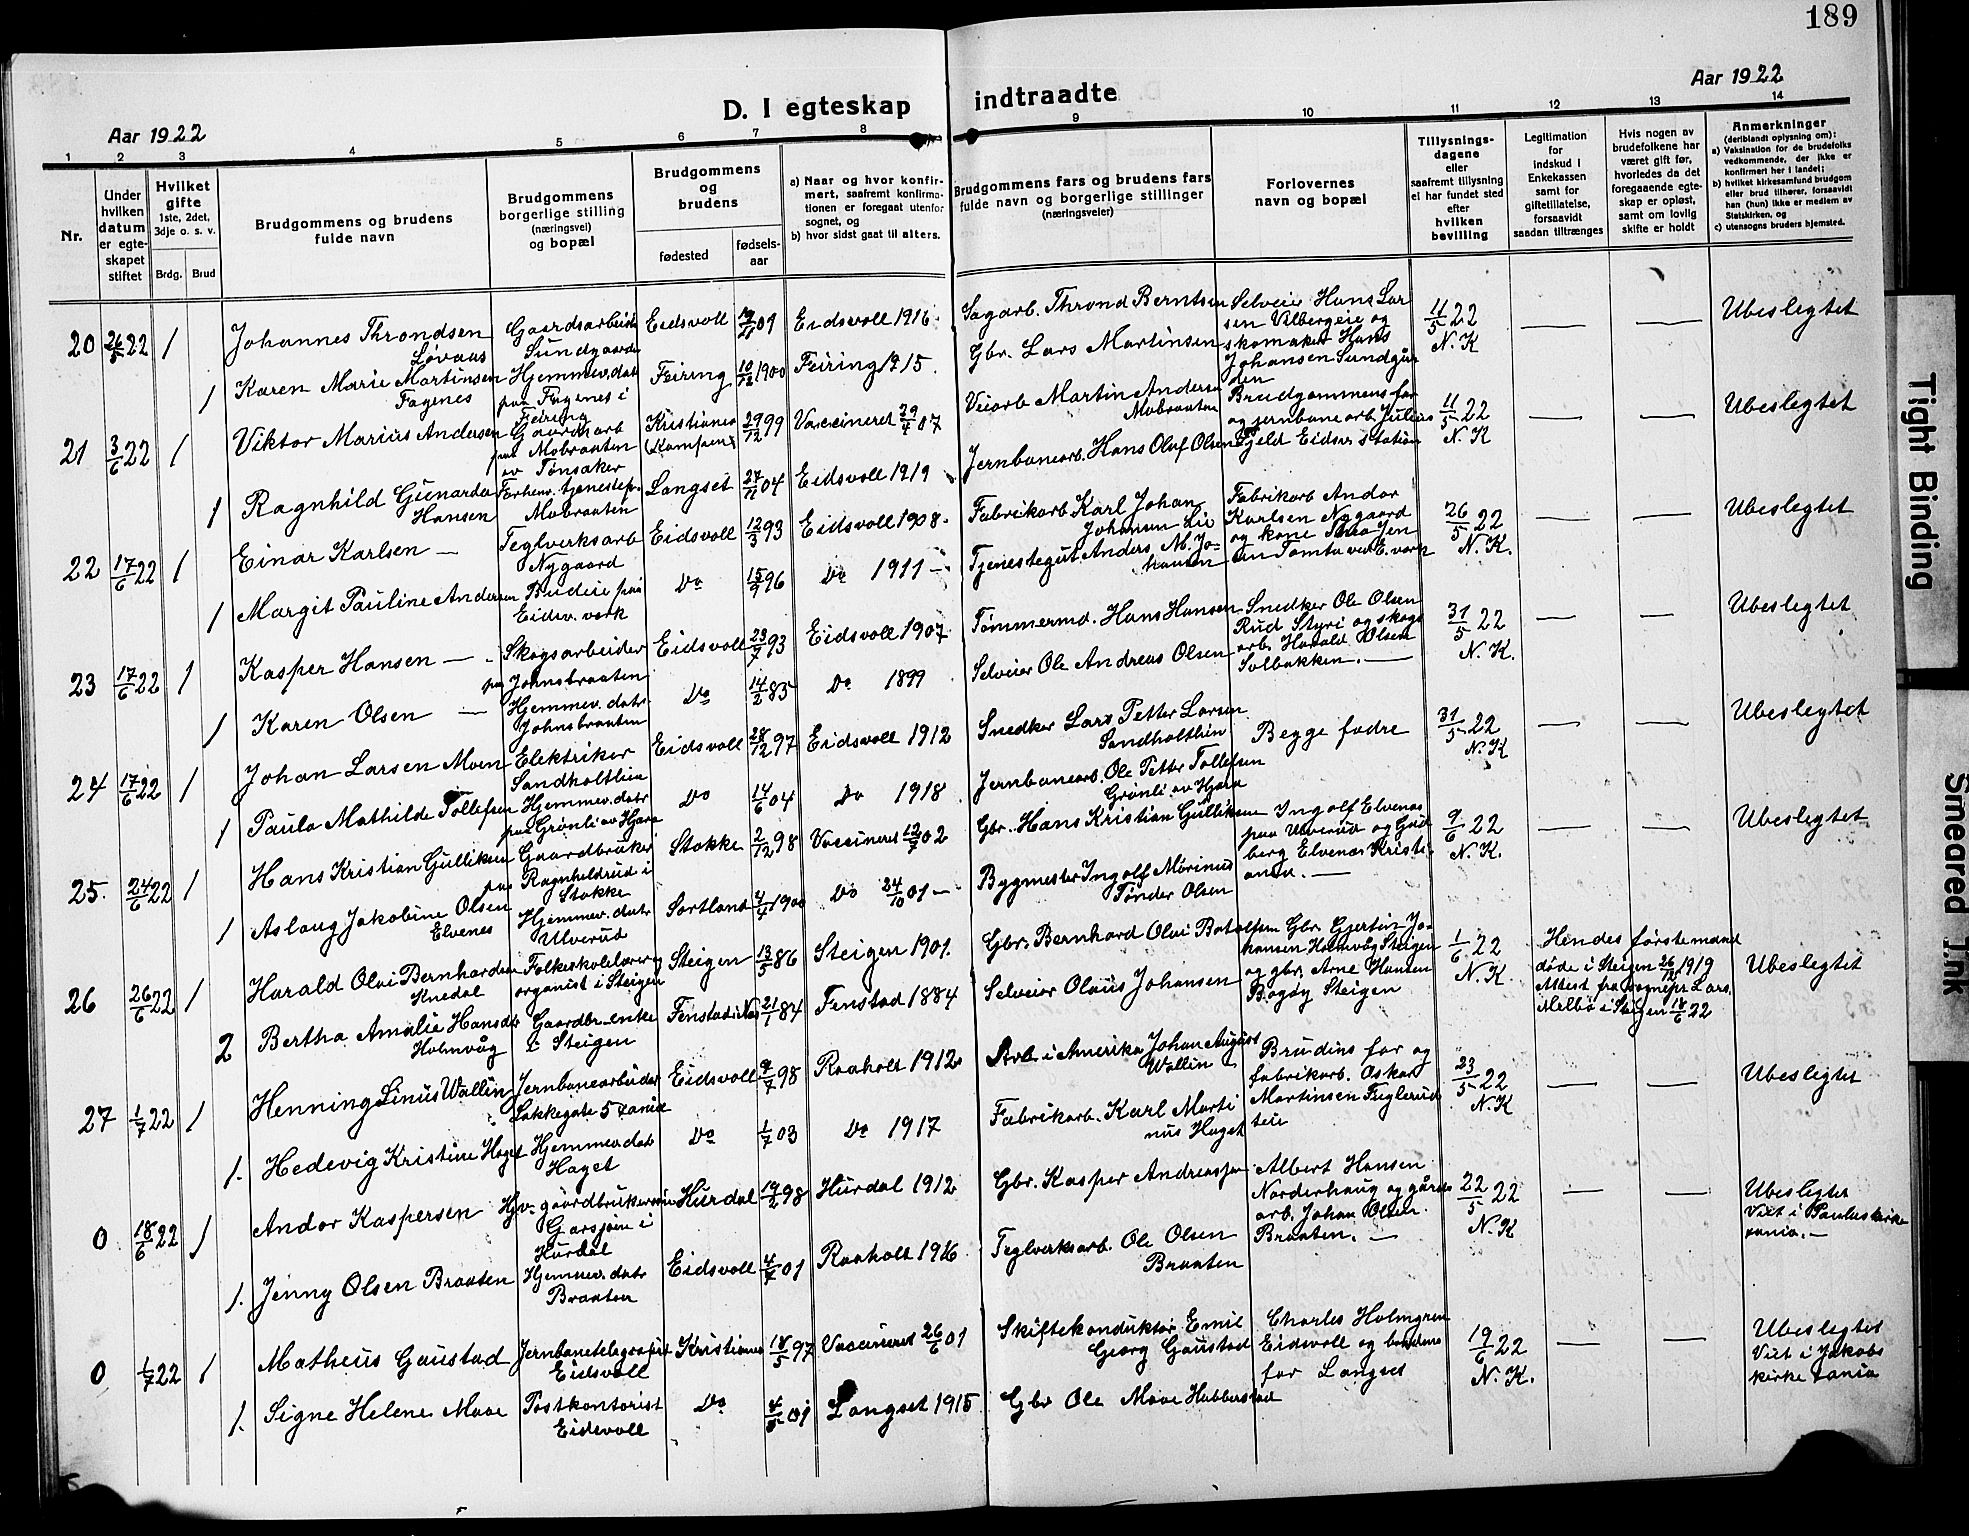 189
Aar 1922
Aar 1922
D. I egteskap indtraadte
1 2 3 4 5 6 7 8 9 10 11 12 13 14
Nr.
Under hvilken datum er egteskapet stiftet
Hvilket gifte 1ste, 2det, 3dje o. s. v.
Brdg. Brud
Brudgommens og brudens fulde navn
Brudgommens borgerlige stilling (næringsvei) og bopæl
Brudgommens og brudens
fødested
fødsels-aar
a) Naar og hvor konfirmert, saafremt konfirmationen er foregaat utenfor sognet, og
b) hvor sidst gaat til alters.
Brudgommens fars og brudens fars fulde navn og borgerlige stillinger (næringsveier)
Forlovernes navn og bopæl
Tillysningsdagene eller saafremt tillysning ei har fundet sted efter hvilken bevilling
Legitimation for indskud i Enkekassen samt for giftetillatelse, forsaavidt saadan tiltrænges
Hvis nogen av brudefolkene har været gift før, hvorledes da det foregaaende egteskap er opløst, samt om lovlig skifte er holdt
Anmerkninger (deriblandt oplysning om): a) Vaksination for de brudefolks vedkommende, der ikke er konfirmert her i landet; b) hvilket kirkesamfund brudgom eller brud tilhører, forsaavidt han (hun) ikke er medlem av Statskirken, og c) utensogns bruders hjemsted.
20 26/5 22 1 Johannes Throndsen Løvaas Gaardsarbeid. Eidsvoll 01 Eidsvoll 1916. Sagarb. Thrond Berntsen Selveier Hans Larsen Vilbergeie og skomaker Hans Johansen Sundgaarden 11/5 22 N. K — — Ubeslegtet
1 Karen Marie Martinsen Fagenes Hjemmev. datr paa Fagenes i Feiring Feiring 10/12 1900 Feiring 1915. Gbr. Lars Martinsen
21 3/6 22 1 Viktor Marius Andersen Gaardarb paa Mobraaten av Tønsaker Kristiania (Kampen) 29/12 99 Vaccineret 29/4 07 Veiarb Martin Andersen Mobraaten Brudgommens far og jernbanearb Julius Fjeld Eidsv. station 11/5 22 N. K — — Ubeslegtet
1 Ragnhild Gunarda Hansen Forhenv. tjenestep. Mobraaten Langset 04 Eidsvoll 1919 Jernbanearb. Hans Olaf Olsen
22 17/6 22 1 Einar Karlsen — Teglverksarb Nygaard Eidsvoll 12/3 93 Eidsvoll 1908. Fabrikarb Karl Johan Johansen Lie Fabrikarb Andor Karlsen Nygaard og kone Tomta ved E. værk 26/5 22 N. K. — — Ubeslegtet
1 Margit Pauline Andersen Budeie paa Eidsv. verk Do 96 Do 1911 — Tjenestegut Anders M. Johansen
23 17/6 22 1 Kasper Hansen — Skogsarbeider paa Johnsbraaten Eidsvoll 23/7 93 Eidsvoll 1907. Tømmermd. Hans Hansen Snedker Ole Olsen Rud Styri og skogsarb. Harald Olsen Solbakken. — 31/5 22 N. K. — — Ubeslegtet
1 Karen Olsen — Hjemmev. datr Johnsbraaten Do 14/2 83 Do 1899 Selveier Ole Andreas Olsen
24 17/6 22 1 Johan Larsen Moen Elektriker Sandholtlien Eidsvoll 28/12 97 Eidsvoll 1912 Snedker Lars Petter Larsen Sandholtlien Begge fædre 31/5 22 N. K — — Ubeslegtet
1 Paula Mathilde Tollefsen Hjemmev. datr paa Grønli av Hjera Do 14/6 04 Do 1918. Jernbanearb. Ole Petter Tollefsen Grønli av Hjera
25. 24/6 22 1 Hans Kristian Gulliksen Gaardbruker paa Ragnhildrud i Stokke Stokke 2/12 98 Vaccineret 12/7 02 Gbr. Hans Kristian Gulliksen Ingolf Elvenes paa Ulverud og Gudberg Elvenes Kristiania. — 9/6 22 N. K. — — Ubeslegtet
1 Aslaug Jakobine Olsen Elvenes Hjemmev. datr Ulverud Sortland 4/4 1900 Do 24/10 01 — Bygmester Ingolf Mörinus Tønder Olsen
26 26/6 22 1 Harald Olvi Bernhardsen Folkeskolelærer og organist i Steigen Steigen 13/5 86 Steigen 1901. Gbr. Bernhard Olvi Batolfsen Gbr. Gjertin Johansen Holmvåg Steigen og gbr. Arne Hansen Bogøy Steigen 1/6 22 N. K Hendes første mand døde i Steigen 26/12 1919 Attest fra sognepr Lars. Melbö i Steigen 18/6 22 Ubeslegtet
2 Bertha Amalie Hansdtr Holmvåg Gaardbr.enke i Steigen 21/1 84 Fenstad 1884 Selveier Olaus Johansen
27 1/7 22 1 Henning Linus Wallin Jernbanearbeider Lakkegate 5 Xania Eidsvoll 9/7 98 Raaholt 1912. Arb. i Amerika Johan August Wallin Brudens far og fabrikarb. Oskar Martinsen Fuglerudteie 23/5 22 N. K — — Ubeslegtet
1. Hedevig Kristine Haget Hjemmev. datr Haget Do 1/7 03 Do 1917 Fabrikarb. Karl Martinus Haget
0 18/6 22 1 Andor Kaspersen Hjv. gaardbrukersøn Garsjøen i Hurdal Hurdal 19/2 98 Hurdal 1912 Gbr. Kasper Andreassen Albert Hansen Norderhaug og gårdsarb. Johan Olsen Braaten. — 22/5 22 N. K — — Ubeslegtet Viet i Pauluskirke xania. —
1. Jenny Olsen Braaten Hjemmev. datr Braaten Eidsvoll 01 Raaholt 1916. Teglverksarb. Ole Olsen Braaten
0 1/7 22 1 Matheus Gaustad Jernbanetelegrafist Eidsvoll Kristiania 18/5 97 Vaccineret 26/6 01 Skiftekonduktør Emil Georg Gaustad Charles Holmgren Eidsvoll og brudens far Langset 19/6 22 N. K. — — Ubeslegtet Viet i Jakobs kirke Xania
1. Signe Helene Moae Postkontorist Eidsvoll Do 01 Langset 1915 Gbr Ole Moae Habberstad
Tight Binding
Smeared Ink